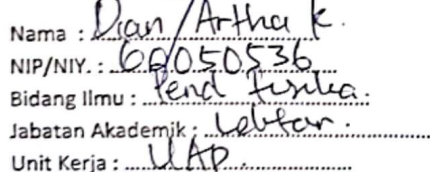 Nama : Dian Artha K.
NIP/NIY. : 60050536
Bidang Ilmu : Pend Fisika.
Jabatan Akademik : Lektor.
Unit Kerja : UAD.